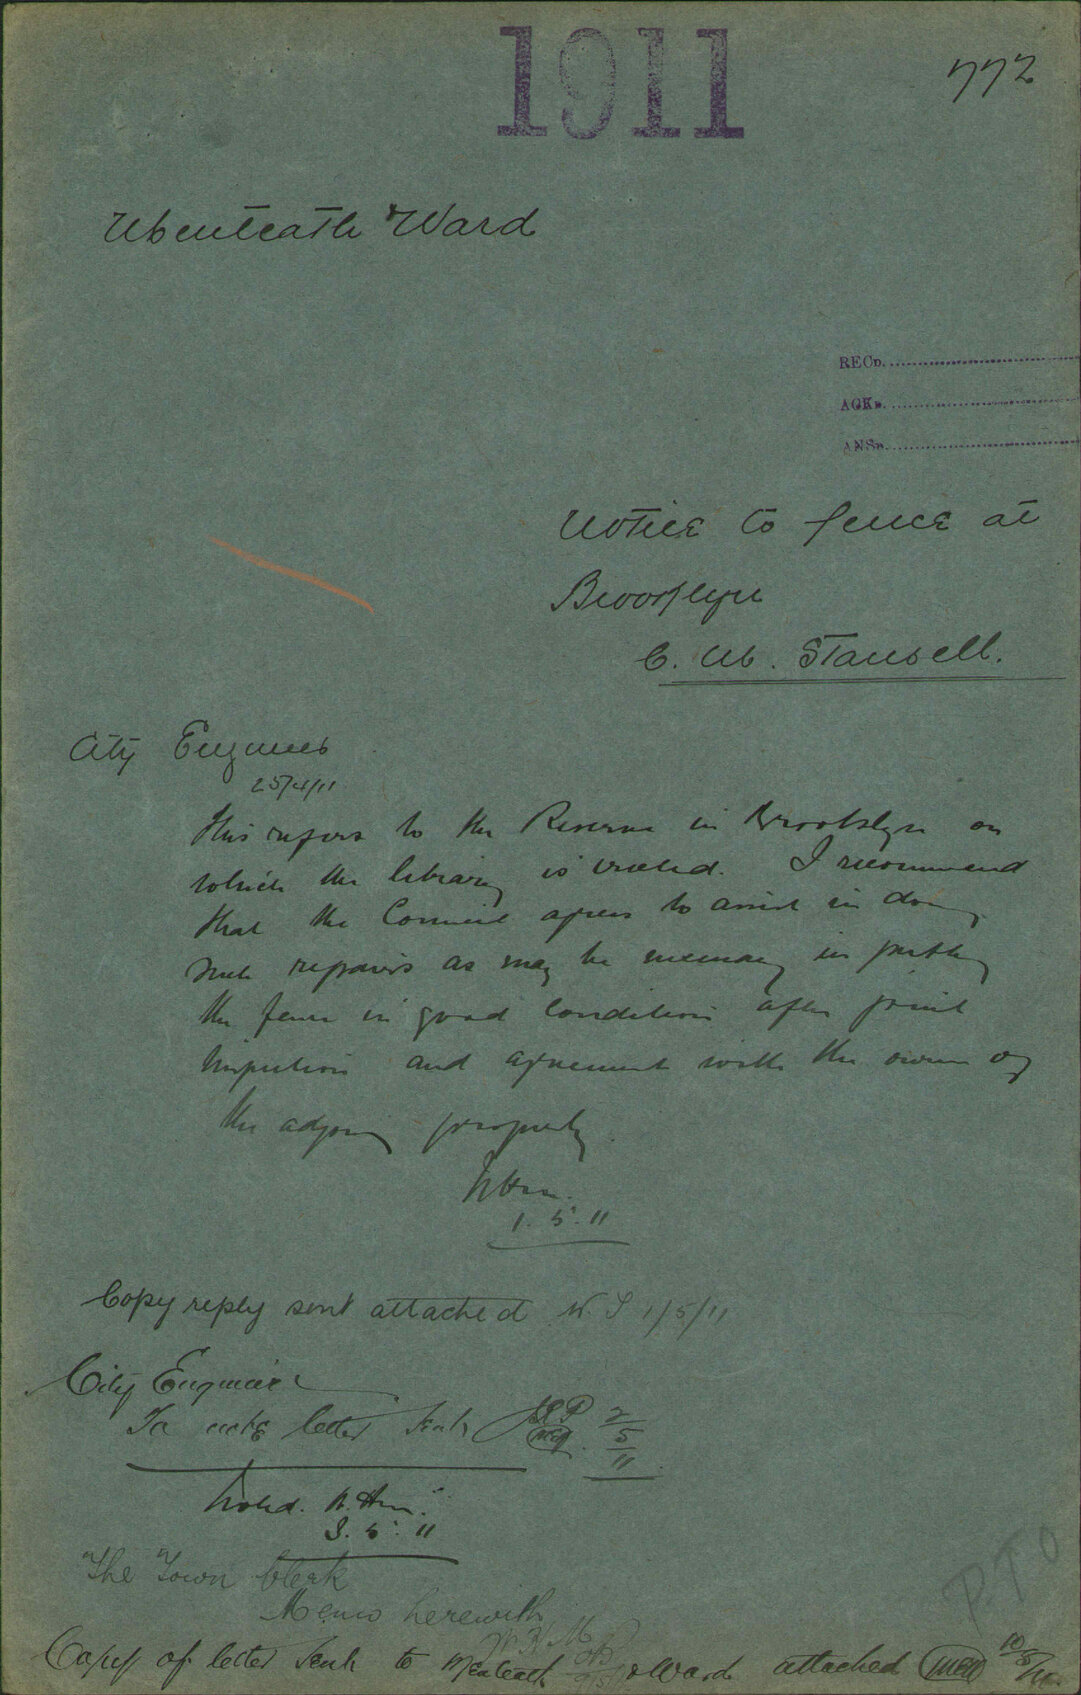 1911
772
Menteath & Ward
RECD.
ACKD.
ANSD.
Notice to fence at
Brooklyn
C. M. Stansell.
City Engineer
25/4/11
This refers to the Reserve in Brooklyn on
which the library is erected. I recommend
that the Council agrees to assist in doing
such repairs as may be necessary in putting
the fence in good condition after joint
inspection and agreement with the owner of
the adjoing property.
1.5.11
Copy reply sent attached 1/5/11
City Engineer
To note letter sent 2/5/11
Noted.
3.5.11
The Town Clerk
Memo herewith
Copy of letter sent to Menteath & Ward attached 10/5/11
P.T.O